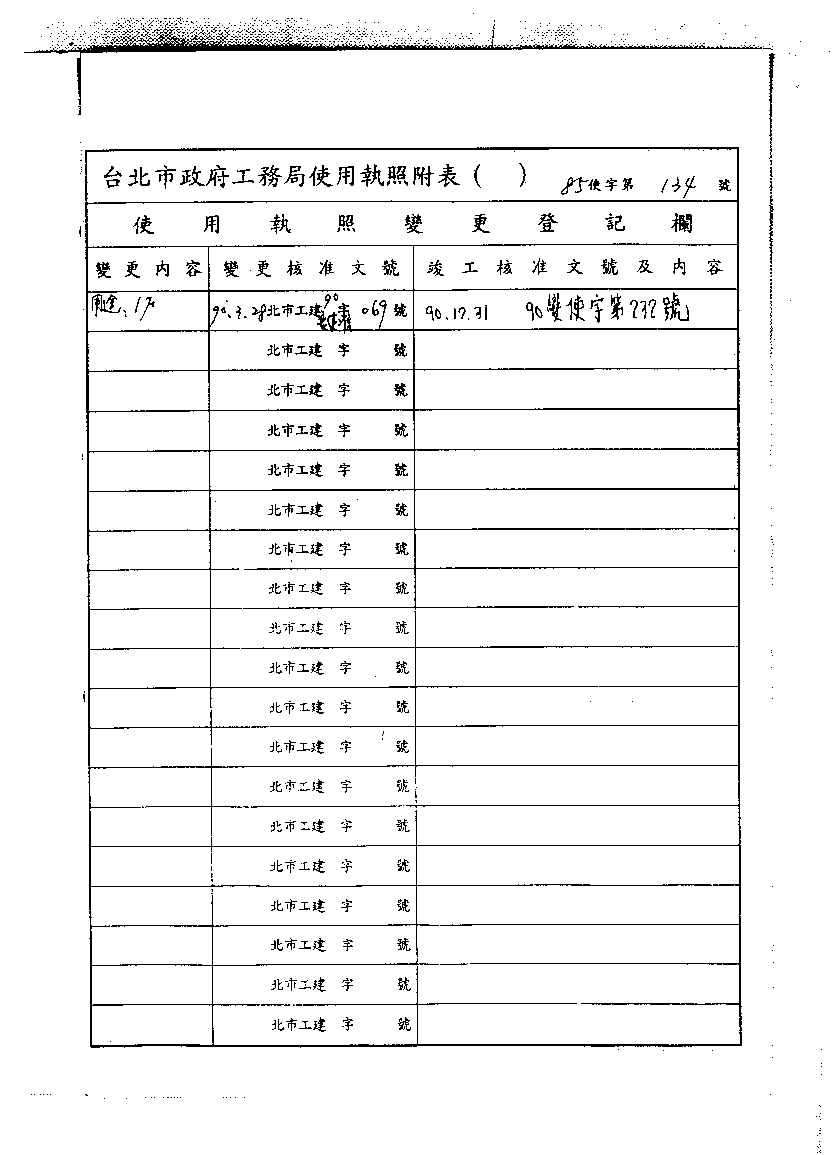 台北市政府工務局使用執照附表（ ） 85使字第 134 號
使用執照變更登記欄
變更內容 變更核准文號 竣工核准文號及內容
用途、 90.3.28北市工建 90 字 069 號 90.12.31 90變使字第232號
北市工建 字 號
北市工建 字 號
北市工建 字 號
北市工建 字 號
北市工建 字 號
北市工建 字 號
北市工建 字 號
北市工建 字 號
北市工建 字 號
北市工建 字 號
北市工建 字 號
北市工建 字 號
北市工建 字 號
北市工建 字 號
北市工建 字 號
北市工建 字 號
北市工建 字 號
北市工建 字 號